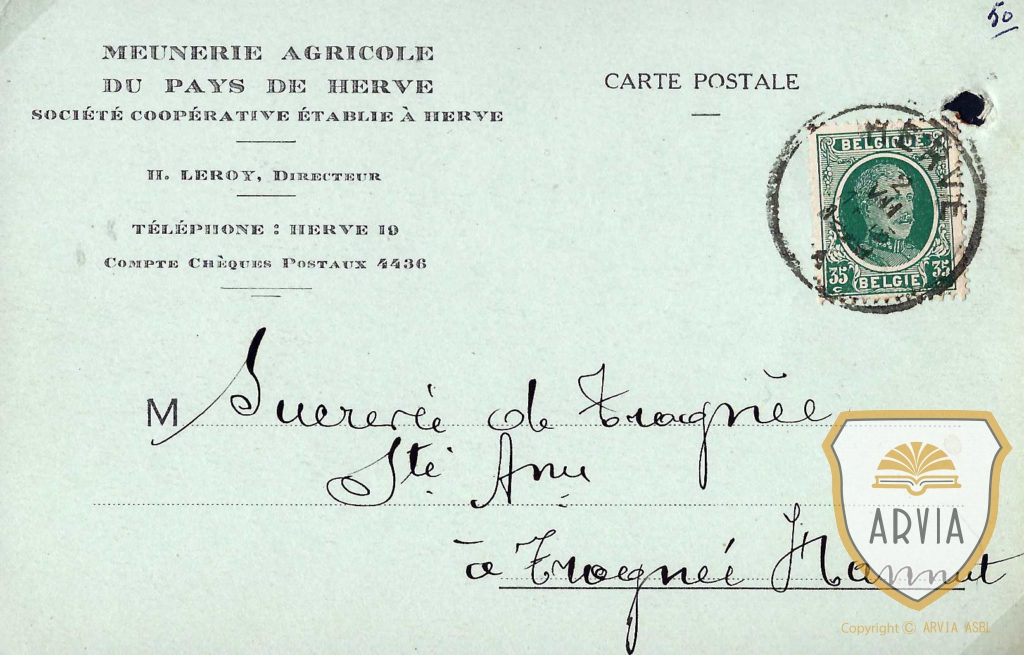 50
MEUNERIE AGRICOLE
DU PAYS DE HERVE
SOCIÉTÉ COOPÉRATIVE ÉTABLIE À HERVE
H. LEROY, DIRECTEUR
TÉLÉPHONE : HERVE 19
COMPTE CHÈQUES POSTAUX 4436
CARTE POSTALE
HERVE
2 VIII
BELGIQUE
35 35
C BELGIE C
M Sucrerie de Trognée
Sté Anme
à Trognée Hannut
ARVIA
Copyright © ARVIA ASBL